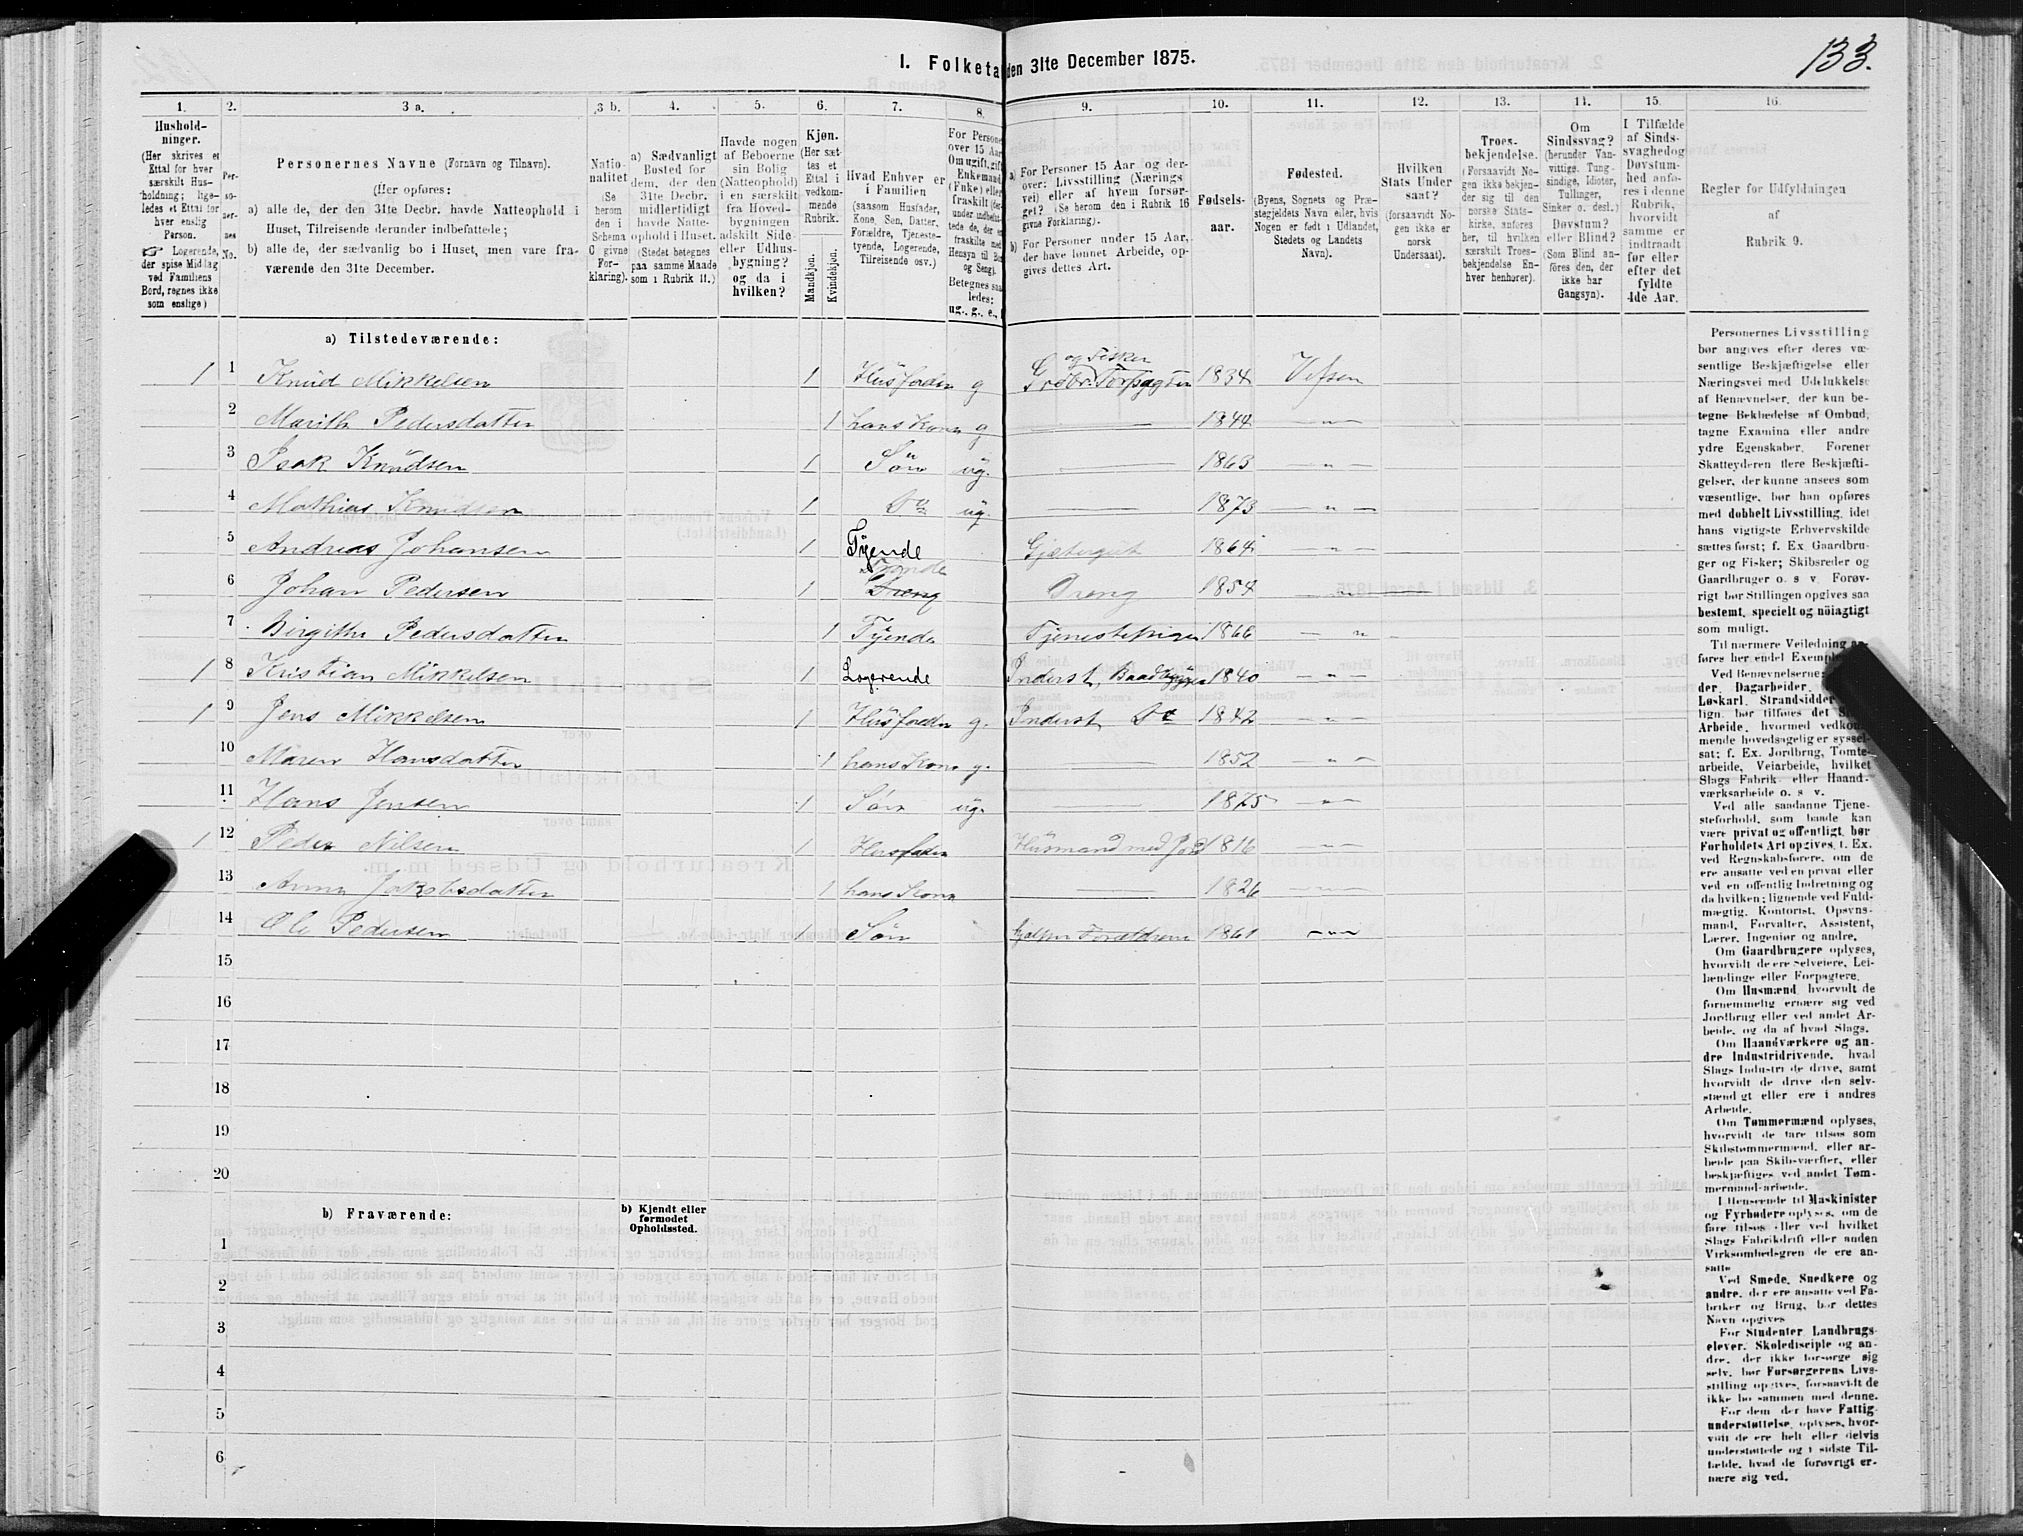 133.
I. Folketa den 31te December 1875.
1. 2. 3 a. 3 b. 4. 5. 6. 7. 8. 9. 10. 11. 12. 13. 14. 15. 16.
Hushold-
ninger.
(Her skrives et
Ettal for hver
særskilt Hus-
holdning; lige-
ledes et Ettal for
hver enslig
Person.
☞ Logerende,
der spise Middag
ved Familiens
Bord, regnes ikke
som enslige)
Per-
so-
ner-
nes
No.
Personernes Navne (Fornavn og Tilnavn).
(Her opføres:
a) alle de, der den 31te Decbr. havde Natteophold i
Huset, Tilreisende derunder indbefattede;
b) alle de, der sædvanlig bo i Huset, men vare fra-
værende den 31te December.
Natio-
nalitet
(Se
herom
den i
Schema
C givne
For-
klaring).
a) Sædvanligt
Bosted for
dem, der den
31te Decbr.
midlertidigt
havde Natte-
ophold i Huset.
(Stedet betegnes
paa samme Maade
som i Rubrik 11.)
Havde nogen
af Beboerne
sin Bolig
(Natteophold)
i en særskilt
fra Hoved-
bygningen
adskilt Side-
eller Udhus-
bygning?
og da i
hvilken?
Kjøn.
(Her sæt-
tes et
Ettal i
vedkom-
mende
Rubrik.
Mandkjøn.
Kvindekjøn.
Hvad Enhver er
i Familien
(saasom Husfader,
Kone, Søn, Datter,
Forældre, Tjeneste-
tyende, Logerende,
Tilreisende osv.)
For Persone
over 15 Aar
Om ugift, gift
Enkemand
(Enke) elle
fraskilt (her-
under indbefat-
tede de, der e
fraskilte med
Hensyn til Bo
og Seng).
Betegnes saa
ledes:
ug., g., e.,
a) For Personer 15 Aar og der-
over: Livsstilling (Nærings-
vei) eller af hvem forsør-
get? (Se herom den i Rubrik 16
givne Forklaring).
b) For Personer under 15 Aar,
der have lønnet Arbeide, op-
gives dettes Art.
Fødsels-
aar.
Fødested.
(Byens, Sognets og Præ-
stegjeldets Navn eller, hvis
Nogen er født i Udlandet,
Stedets og Landets
Navn).
Hvilken
Stats Under
saat?
(forsaavidt No-
gen ikke er
norsk
Undersaat).
Troes-
bekjendelse.
(Forsaavidt No-
gen ikke bekjen-
der sig til den
norske Stats-
kirke, anføres
her, til hvilken
særskilt Troes-
bekjendelse En-
hver henhører).
Om
Sindssvag?
(herunder Van-
vittige, Tung-
sindige, Idioter,
Tullinger,
Sinker o. desl.)
Døvstum?
eller Blind?
(Som Blind an-
føres den, der
ikke har
Gangsyn).
I Tilfælde
af Sinds-
svaghedog
Døvstum-
hed anfø-
res i denne
Rubrik,
hvorvidt
samme er
indtraadt
før eller
efter det
fyldte
4de Aar.
Regler for Udfyldningen
af
Rubrik 9.
a) Tilstedeværende:
og Fisker
1 1 Knud Mikkelsen 1 Husfader g Grdbr. Forpagter 1834 Vefsen
2 Marith Pedersdatter 1 hans Kone g — 1844 — " —
3 Isak Knudsen 1 Søn ug. — 1863 — " —
4 Mathias Knudsen 1 Do ug. — 1873 — " —
5 Andreas Johansen 1 Tyende Gjætergut 1864 — " —
Tyende
6 Johan Pedersen 1 Dreng Dreng 1854 — " —
7 Birgithe Pedersdatter 1 Tyende Tjenestepige 1866 — " —
1 8 Kristian Mikkelsen 1 Logerende Inderst, Baadbygger 1840 — " —
1 9 Jens Mikkelsen 1 Husfader g. Inderst Do 1842 — " —
10 Maren Hansdatter 1 hans Kone g. — 1852 — " —
11 Hans Jensen 1 Søn ug. — 1875 — " —
1 12 Peder Nilsen 1 Husfader Husmand med Jord 1816 — " —
13 Anna Jakobsdatter 1 hans Kone — 1826 — " —
14 Ole Pedersen 1 Søn hjelper Forældrene 1861 — " —
15
16
17
18
19
20
b) Fraværende:
b) Kjendt eller
formodet
Opholdssted.
1
2
3
4
5
6
Personernes Livsstilling
bør angives efter deres væ-
sentlige Beskjæftigelse eller
Næringsvei med Udelukkelse
af Benævnelser, der kun be-
tegne Beklædelse af Ombud,
tagne Examina eller andre
ydre Egenskaber. Forener
Skatteyderen flere Beskjæfti-
gelser, der kunne ansees som
væsentlige, bør han opføres
med dobbelt Livsstilling, idet
hans vigtigste Erhvervskilde
sættes først; f. Ex. Gaardbru-
ger og Fisker; Skibsreder og
Gaardbruger o. s. v. Forøv-
rigt bør Stillingen opgives saa
bestemt, specielt og nöiagtigt
som muligt.
Til nærmere Veiledning an-
føres her endel Exempler:
Ved Benævnelserne:
der, Dagarbeider,
Løskarl, Strandsidder
lign. bør tilføres det S
Arbeide, hvormed vedkom-
mende hovedsagelig er syssel-
sat; f. Ex. Jordbrug, Tomte-
arbeide, Veiarbeide, hvilket
Slags Fabrik- eller Haand-
værksarbeide o. s. v.
Ved alle saadanne Tjene-
steforhold, som baade kan
være privat og offentligt, bør
Forholdets Art opgives, f. Ex.
ved Regnskabsførere, om de
ere ansatte ved en privat eller
ved en offentlig Indretning og
da hvilken; lignende ved Fuld-
mægtig, Kontorist, Opsyns-
mand, Forvalter, Assistent,
Lærer, Ingeniør og andre.
Om Gaardbrugere oplyses,
hvorvidt de ere Selveiere, Lei-
lændinge eller Forpagtere.
Om Husmænd, hvorvidt de
fornemmelig ernære sig ved
Jordbrug eller ved andet Ar-
beide, og da af hvad Slags.
Om Haandværkere og an-
dre Industridrivende, hvad
Slags Industri de drive, samt
hvorvidt de drive den selv-
stændigt eller ere i andres
Arbeide.
Om Tømmermænd oplyses,
hvorvidt de fare tilsøs som
Skibstømmermænd, eller ar-
beide paa Skibsværfter, eller
beskjæftiges ved andet Tøm-
mermandsarbeide.
I Henseende til Maskinister
og Fyrbødere oplyses, om de
fare tilsøs eller ved hvilket
Slags Fabrikdrift eller anden
Virksomhedsgren de ere an-
satte.
Ved Smede, Snedkere og
andre, der ere ansatte ved Fa-
briker og Brug, bør dettes
Navn opgives.
For Studenter, Landbrugs-
elever, Skoledisciple og an-
dre, der ikke forsørge sig
selv, bør Forsørgerens Livs-
stilling opgives, forsaavidt de
ikke bo sammen med denne.
For dem, der have Fattig-
understøttelse, oplyses, hvor-
vidt de ere helt eller delvis
understøttede og i sidste Til-
fælde, hvad de forøvrigt er-
nære sig ved.